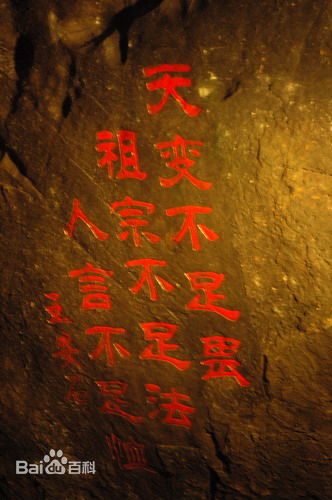 天变不足畏
祖宗不足法
人言不足恤
王安石
Bai百科